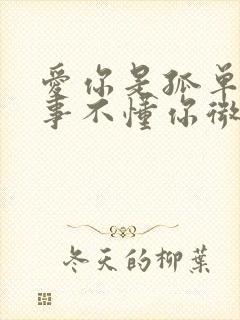 愛你是孤单
事不懂你微
冬天的柳葉